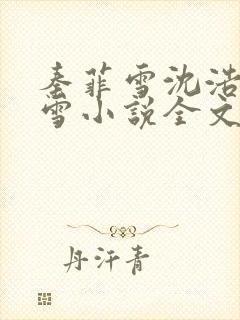 秦菲雪沈浩
雪小说全文
丹汗青